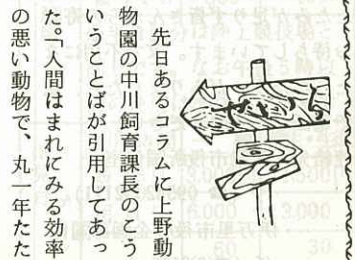 先日あるコラムに上野動
物園の中川飼育課長のこう
いうことばが引用してあっ
た。「人間はまれにみる効率
の悪い動物で、丸一年たた